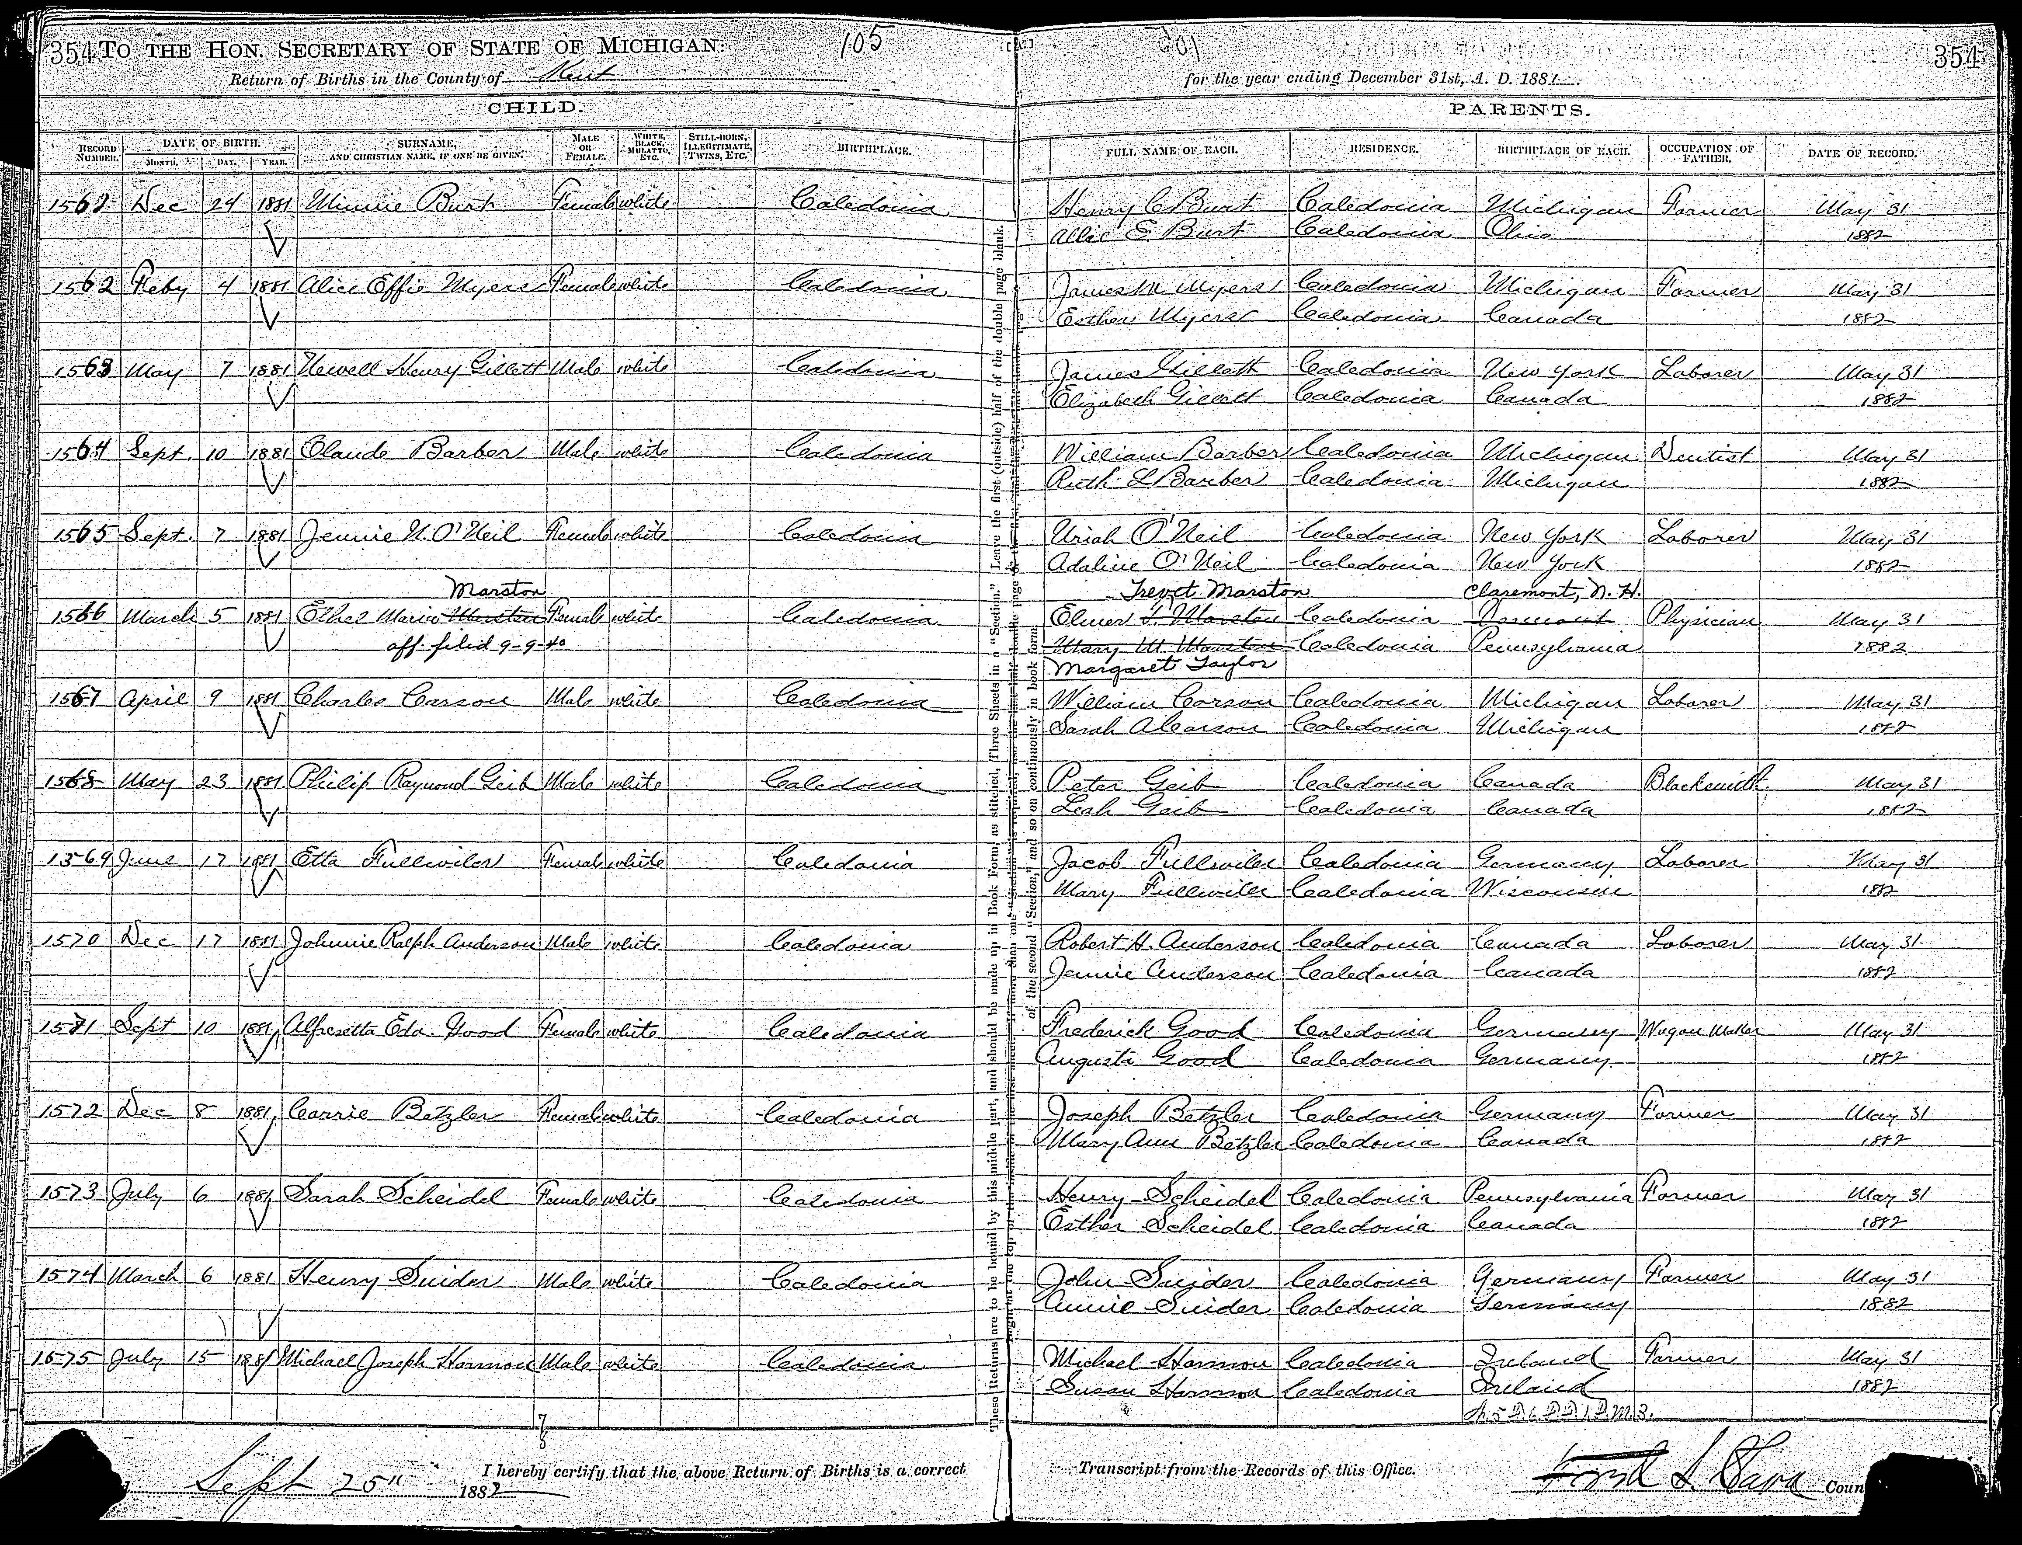 354 TO THE HON. SECRETARY OF STATE OF MICHIGAN: 105 354
Return of Births in the County of Kent for the year ending December 31st, A. D. 1881.
CHILD. PARENTS.
RECORD NUMBER. DATE OF BIRTH. MONTH. DAY. YEAR. SURNAME, AND CHRISTIAN NAME, IF ONE BE GIVEN. MALE OR FEMALE. WHITE, BLACK, MULATTO, ETC. STILL-BORN, ILLEGITIMATE, TWINS, ETC. BIRTHPLACE. FULL NAME OF EACH. RESIDENCE. BIRTHPLACE OF EACH. OCCUPATION OF FATHER. DATE OF RECORD.
Dec 24 1881 Minnie Burt Female white Caledonia Henry C Burt Caledonia Michigan Farmer May 31
Allie E Burt Caledonia Ohio 1882
1562 Feby 4 1881 Alice Effie Myers Female white Caledonia James M Myers Caledonia Michigan Farmer May 31
Esther Myers Caledonia Canada 1882
1563 May 7 1881 Newell Henry Gillett Male white Caledonia James Gillett Caledonia New York Laborer May 31
Elizabeth Gillett Caledonia Canada 1882
1564 Sept. 10 1881 Claude Barber Male white Caledonia William Barber Caledonia Michigan Dentist May 31
Ruth L Barber Caledonia Michigan 1882
1565 Sept. 7 1881 Jennie N. O'Neil Female white Caledonia Uriah O'Neil Caledonia New York Laborer May 31
Adaline O'Neil Caledonia New York 1882
Marston Trevet Marston Claremont, N. H.
1566 March 5 1881 Ethel Marie Marston Female white Caledonia Elmer T. Marston Caledonia Vermont Physician May 31
aff. filed 9-9-40 Mary M Marston Caledonia Pennsylvania 1882
Margaret Taylor
1567 April 9 1881 Charles Carson Male white Caledonia William Carson Caledonia Michigan Laborer May 31
Sarah A Carson Caledonia Michigan 1882
1568 May 23 1881 Philip Raymond Geib Male white Caledonia Peter Geib Caledonia Canada Blacksmith May 31
Leah Geib Caledonia Canada 1882
1569 June 17 1881 Etta Fullwiler Female white Caledonia Jacob Fullwiler Caledonia Germany Laborer May 31
Mary Fullwiler Caledonia Wisconsin 1882
1570 Dec 17 1881 Johnnie Ralph Anderson Male white Caledonia Robert H. Anderson Caledonia Canada Laborer May 31
Jennie Anderson Caledonia Canada 1882
1571 Sept 10 1881 Alfresetta Eda Good Female white Caledonia Frederick Good Caledonia Germany Wagon Maker May 31
Augusti Good Caledonia Germany 1882
1572 Dec 8 1881 Carrie Betzler Female white Caledonia Joseph Betzler Caledonia Germany Farmer May 31
Mary Ann Betzler Caledonia Canada 1882
1573 July 6 1881 Sarah Scheidel Female white Caledonia Henry Scheidel Caledonia Pennsylvania Farmer May 31
Esther Scheidel Caledonia Canada 1882
1574 March 6 1881 Henry Snider Male white Caledonia John Snider Caledonia Germany Farmer May 31
Annie Snider Caledonia Germany 1882
1575 July 15 1881 Michael Joseph Harmon Male white Caledonia Michael Harmon Caledonia Ireland Farmer May 31
Susan Harmon Caledonia Ireland 1882
Sept 25" 1882 I hereby certify that the above Return of Births is a correct Transcript from the Records of this Office. Coun